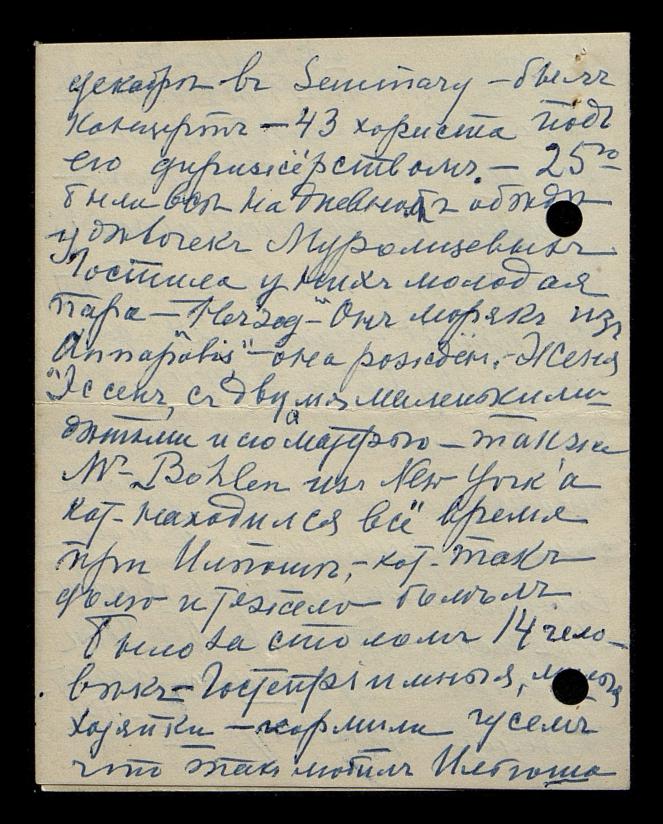 декабря въ Seminary – былъ
Концертъ – 43 хориста подъ
его дирижёрствомъ. – 25го
были всѣ на дневномъ обѣдѣ
у дѣвочекъ Муромцевыхъ
Гостила у нихъ молодая
пара – "Herzog" – Онъ морякъ изъ
"Annapolis" – она рожден. – Женя
"Эссенъ, съ двумя маленькими
дѣтьми и со матерью – также
Mr Bohlen изъ New York'а
кот. находился всё время
при Ильюшѣ, – кот. такъ
долго и тяжело болѣлъ
Было за столомъ 14 чело-
вѣкъ – Гостепріимныя, милыя
хозяйки – кормили гусемъ
что такъ любилъ Ильюша